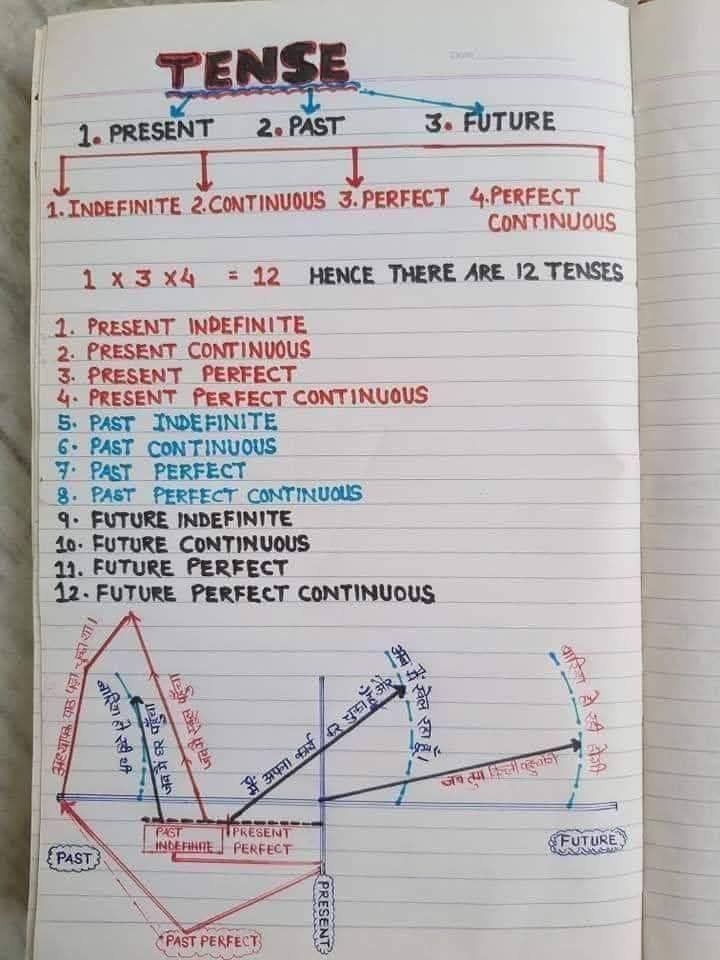 TENSE
1. PRESENT 2. PAST 3. FUTURE
1. INDEFINITE 2. CONTINUOUS 3. PERFECT 4. PERFECT
CONTINUOUS
1 x 3 x 4 = 12 HENCE THERE ARE 12 TENSES
1. PRESENT INDEFINITE
2. PRESENT CONTINUOUS
3. PRESENT PERFECT
4. PRESENT PERFECT CONTINUOUS
5. PAST INDEFINITE
6. PAST CONTINUOUS
7. PAST PERFECT
8. PAST PERFECT CONTINUOUS
9. FUTURE INDEFINITE
10. FUTURE CONTINUOUS
11. FUTURE PERFECT
12. FUTURE PERFECT CONTINUOUS
बारिश हो रही थी
जब मैं घर पहुँचा
मैं अपना कार्य कर चुका हूँ और
अब मैं खेल रहा हूँ।
जब तुम
बारिश हो रही होगी
PAST
INDEFINITE
PRESENT
PERFECT
PAST
FUTURE
PRESENT
PAST PERFECT